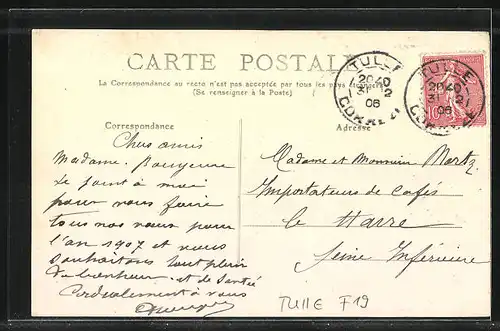 CARTE POSTALE
La Correspondance au recto n'est pas acceptée par tous les pays étrangers
(Se renseigner à la Poste)
TULLE
20 40
31 12
06
CORREZE
TULLE
20 40
31 12
06
CORREZE
Correspondance
Adresse
Chers amis
Madame se joint à moi
pour vous faire
tous nos vœux pour
l'an 1907 et vous
souhaitons tout plein
de bonheur et de santé
Cordialement à vous
Madame et Monsieur
Importateurs de Cafés
le Havre
Seine Inférieure
TULLE F19